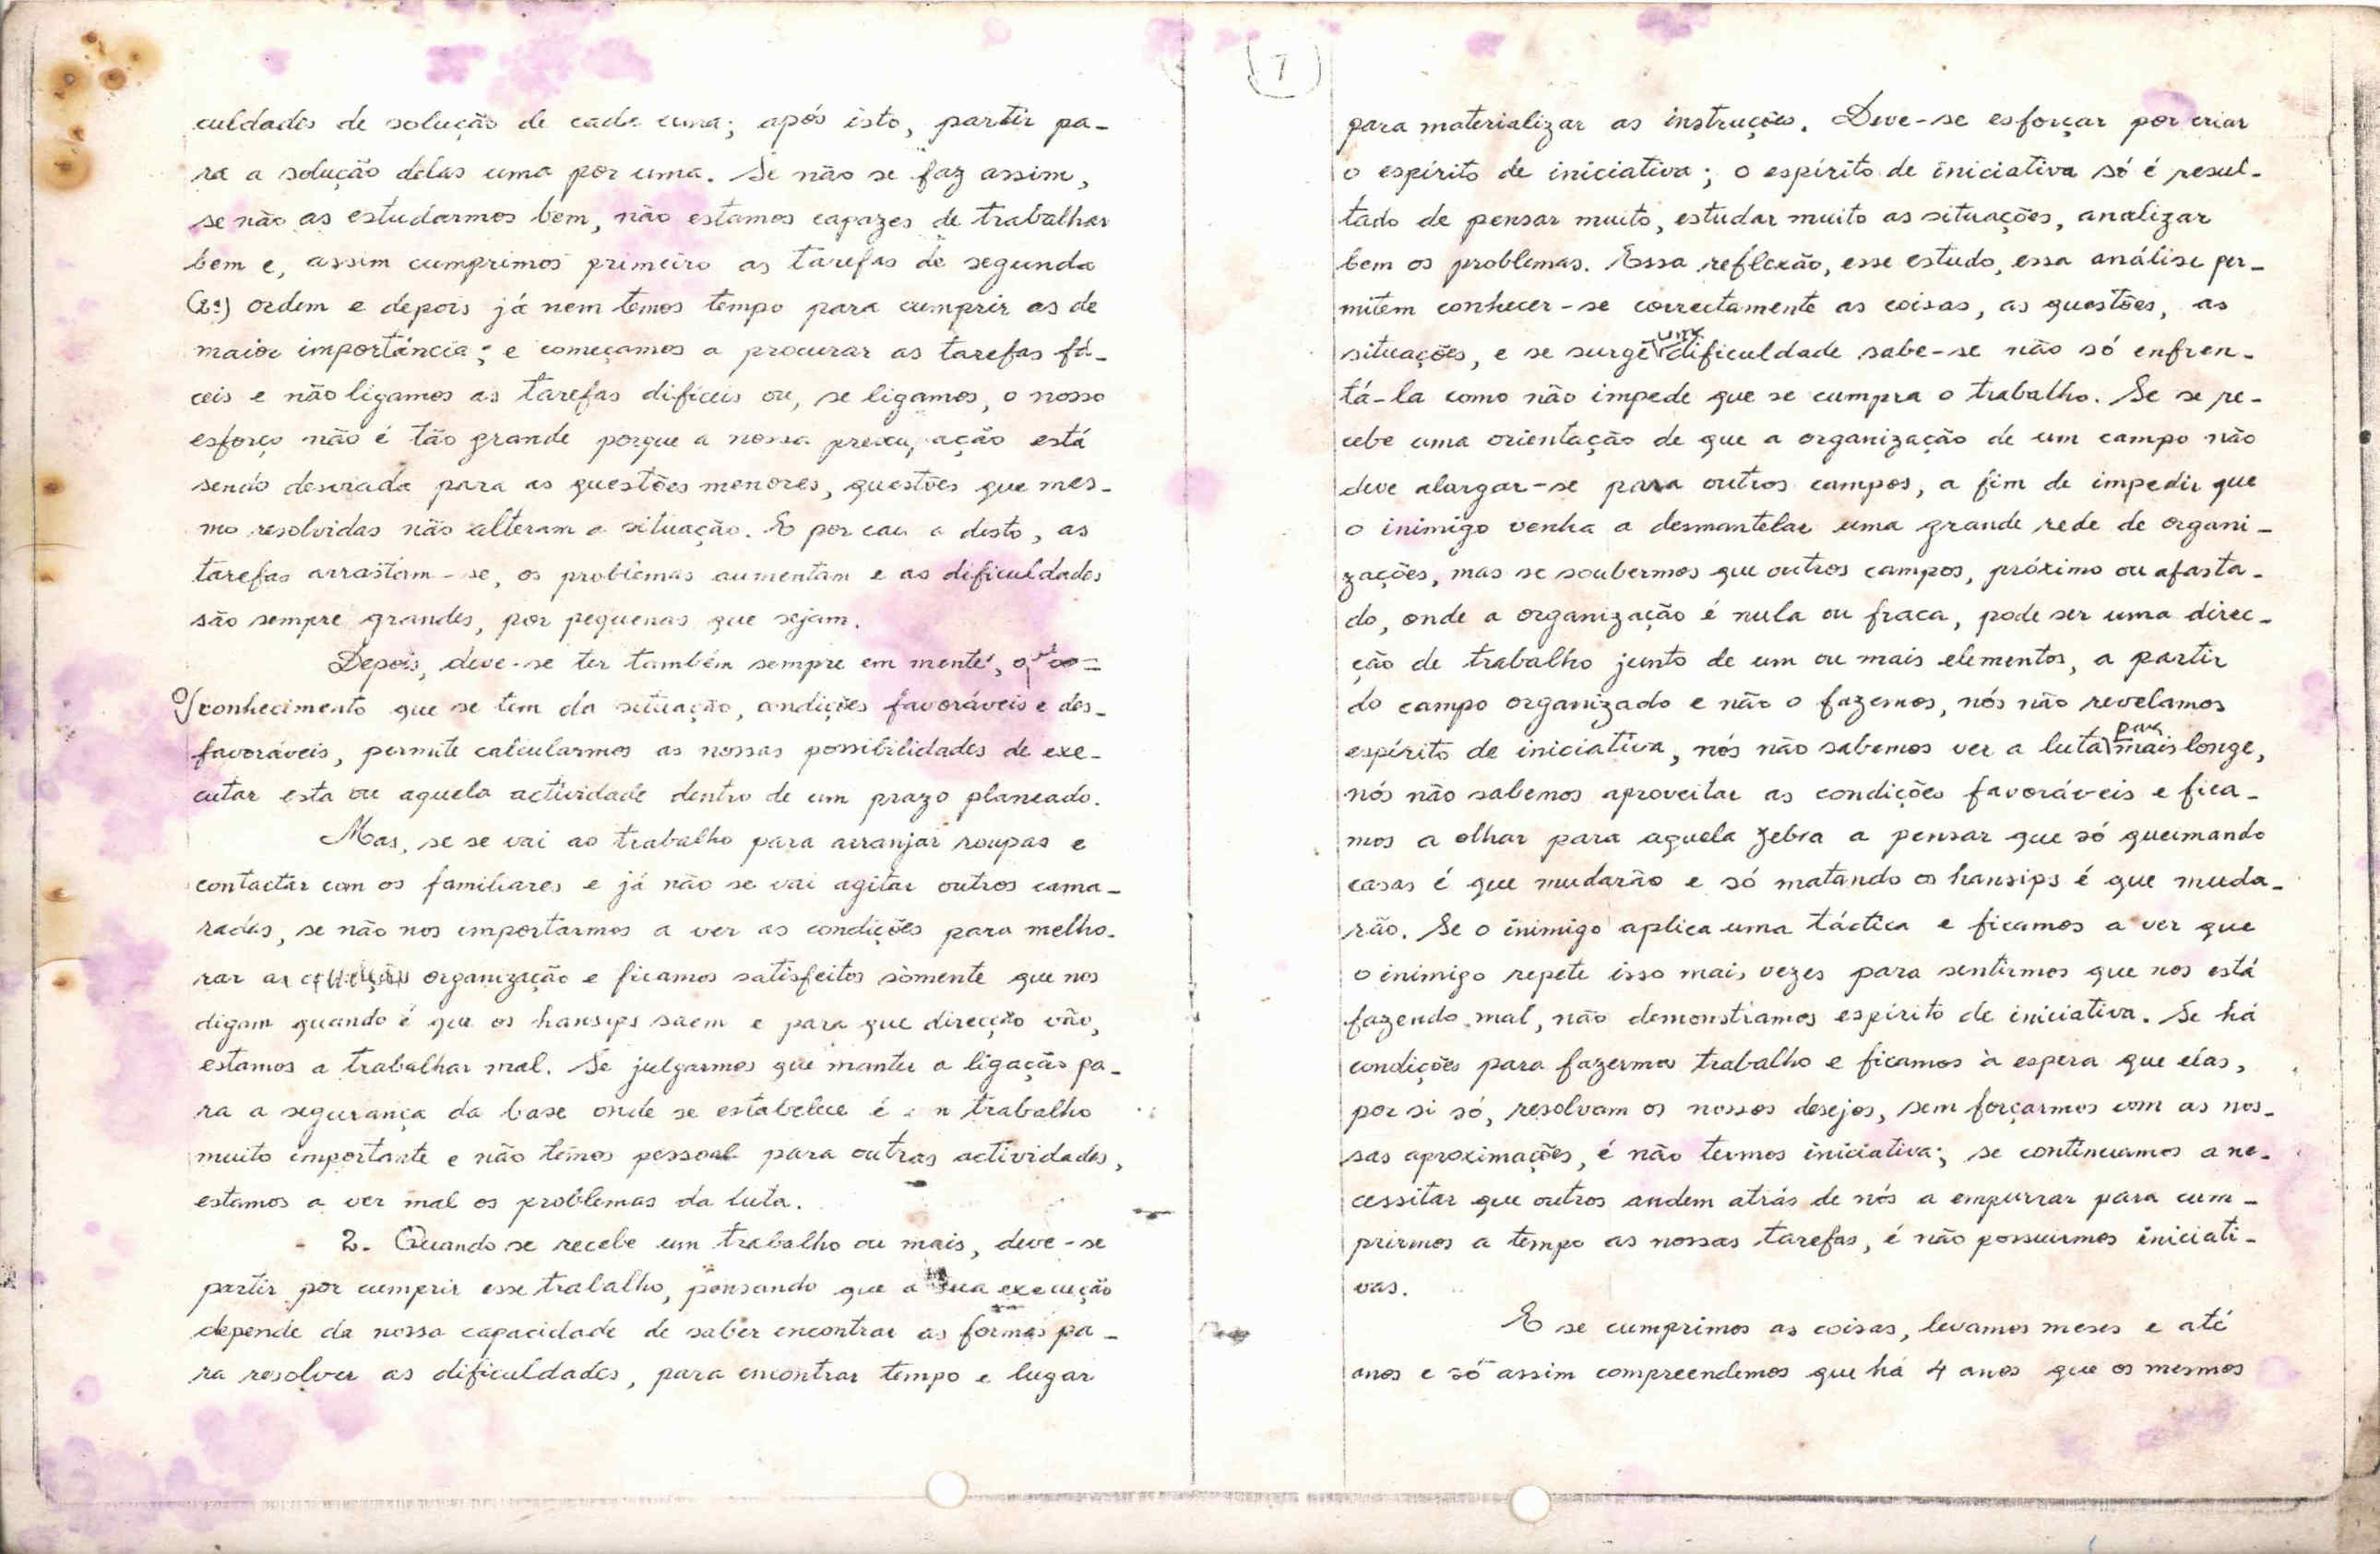 culdades de solução de cada uma; após isto, partir pa-
ra a solução delas uma por uma. Se não se faz assim,
se não as estudarmos bem, não estamos capazes de trabalhar
bem e, assim cumprimos primeiro as tarefas de segunda
(2ª) ordem e depois já nem temos tempo para cumprir as de
maior importância; e começamos a procurar as tarefas fá-
ceis e não ligamos as tarefas difíceis ou, se ligamos, o nosso
esforço não é tão grande porque a nossa preocupação está
sendo desviada para as questões menores, questões que mes-
mo resolvidas não alteram a situação. E por causa disto, as
tarefas arrastam-se, os problemas aumentam e as dificuldades
são sempre grandes, por pequenas que sejam.
Depois, deve-se ter também sempre em mente, que
o conhecimento que se tem da situação, condições favoráveis e des-
favoráveis, permite calcularmos as nossas possibilidades de exe-
cutar esta ou aquela actividade dentro de um prazo planeado.
Mas, se se vai ao trabalho para arranjar roupas e
contactar com os familiares e já não se vai agitar outros cama-
radas, se não nos importarmos a ver as condições para melho-
rar a organização e ficamos satisfeitos sòmente que nos
digam quando é que os hansips saem e para que direcção vão,
estamos a trabalhar mal. Se julgarmos que manter a ligação pa-
ra a segurança da base onde se estabelece é um trabalho
muito importante e não temos pessoal para outras actividades,
estamos a ver mal os problemas da luta.
- 2. Quando se recebe um trabalho ou mais, deve-se
partir por cumprir esse trabalho, pensando que a sua execução
depende da nossa capacidade de saber encontrar as formas pa-
ra resolver as dificuldades, para encontrar tempo e lugar
(7)
para materializar as instruções. Deve-se esforçar por criar
o espírito de iniciativa; o espírito de iniciativa só é resul-
tado de pensar muito, estudar muito as situações, analizar
bem os problemas. Essa reflexão, esse estudo, essa análise per-
mitem conhecer-se correctamente as coisas, as questões, as
situações, e se surge uma dificuldade sabe-se não só enfren-
tá-la como não impede que se cumpra o trabalho. Se se re-
cebe uma orientação de que a organização de um campo não
deve alargar-se para outros campos, a fim de impedir que
o inimigo venha a desmantelar uma grande rede de organi-
zações, mas se soubermos que outros campos, próximo ou afasta-
do, onde a organização é nula ou fraca, pode ser uma direc-
ção de trabalho junto de um ou mais elementos, a partir
do campo organizado e não o fazemos, nós não revelamos
espírito de iniciativa, nós não sabemos ver a luta para mais longe,
nós não sabemos aproveitar as condições favoráveis e fica-
mos a olhar para aquela zebra a pensar que só queimando
casas é que mudarão e só matando os hansips é que muda-
rão. Se o inimigo aplica uma táctica e ficamos a ver que
o inimigo repete isso mais vezes para sentirmos que nos está
fazendo mal, não demonstramos espírito de iniciativa. Se há
condições para fazermos trabalho e ficamos à espera que elas,
por si só, resolvam os nossos desejos, sem forçarmos com as nos-
sas aproximações, é não termos iniciativa; se continuamos a ne-
cessitar que outros andem atrás de nós a empurrar para cum-
prirmos a tempo as nossas tarefas, é não possuirmos iniciati-
vas.
E se cumprimos as coisas, levamos meses e até
anos e só assim compreendemos que há 4 anos que os mesmos